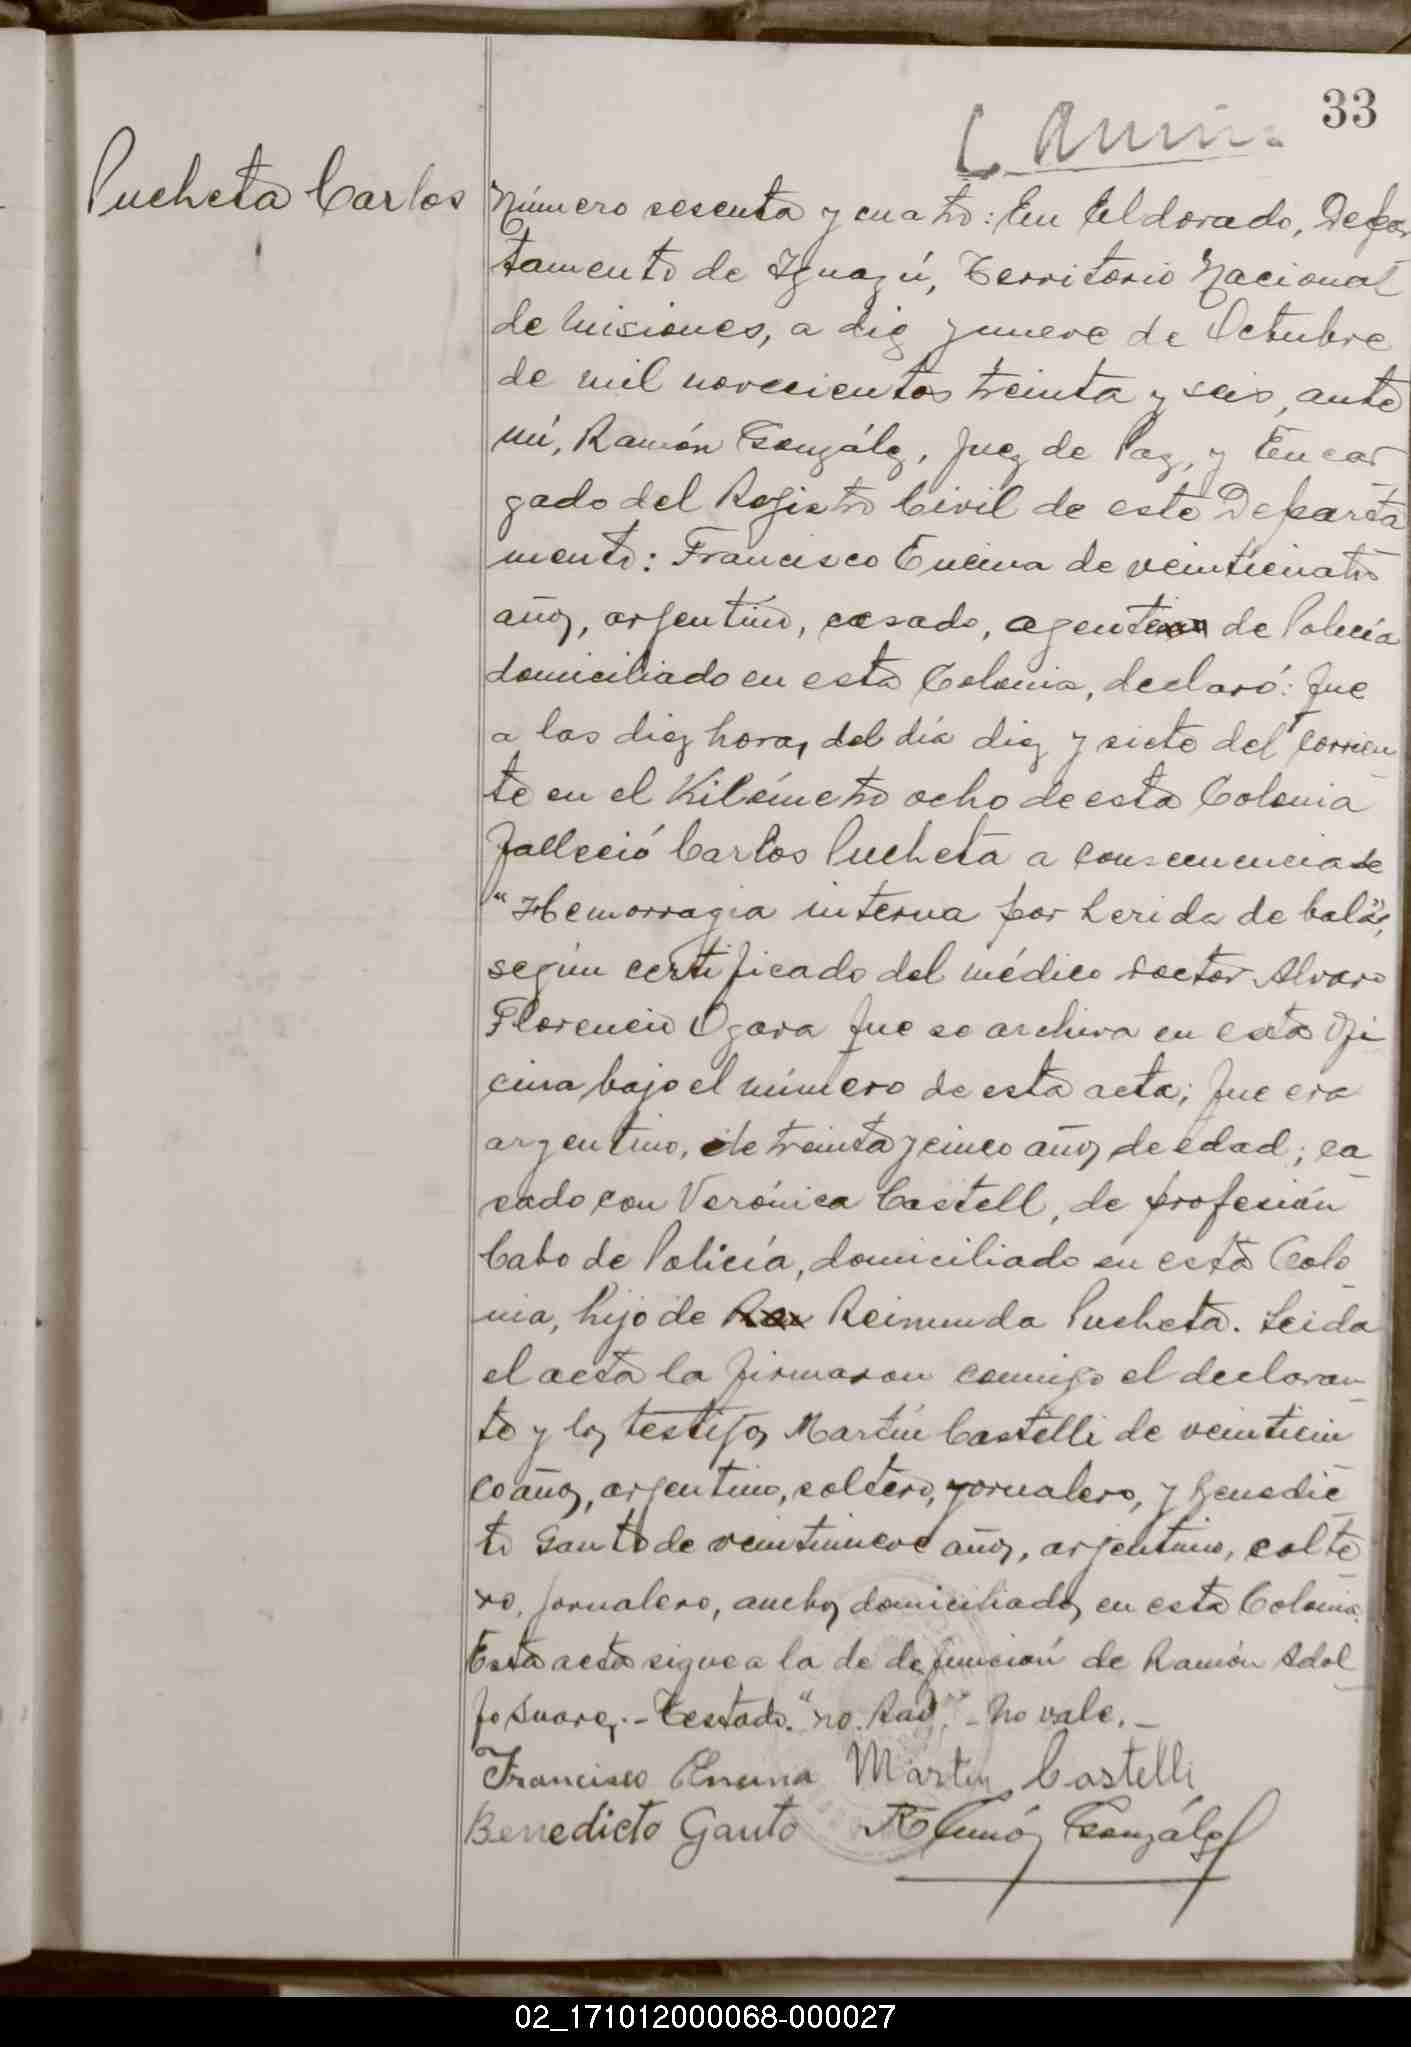 33
Pucheta Carlos
Número sesenta y cuatro: En Eldorado, Depar
tamento de Iguazú, Territorio Nacional
de Misiones, a diez y nueve de Octubre
de mil novecientos treinta y seis, ante
mí, Ramón González, Juez de Paz, y Encar
gado del Registro Civil de este Departa
mento: Francisco Encina de veinticuatro
años, argentino, casado, agente de Policía
domiciliado en esta Colonia, declaró: Que
a las diez horas del día diez y siete del corrien
te en el Kilómetro ocho de esta Colonia
falleció Carlos Pucheta a consecuencia de
"Hemorragia interna por herida de bala",
según certificado del médico doctor Alvaro
Florencio Ogara que se archiva en esta Ofi
cina bajo el número de esta acta; que era
argentino, de treinta y cinco años de edad; ca
sado con Verónica Castell, de profesión
Cabo de Policía, domiciliado en esta Colo
nia, hijo de Rai Reimunda Pucheta. Leida
el acta la firmaron conmigo el declaran
te y los testigos Martín Castelli de veinticin
co años, argentino, soltero, jornalero, y Benedic
to Gauto de veintinueve años, argentino, solte
ro, jornalero, ambos domiciliados en esta Colonia.
Esta acta sigue a la de defunción de Ramón Adol
fo Suarez.- Testado. "ro. Rai".- No vale.-
Francisco Encina Martin Castelli
Benedicto Gauto Ramón González
02_171012000068-000027